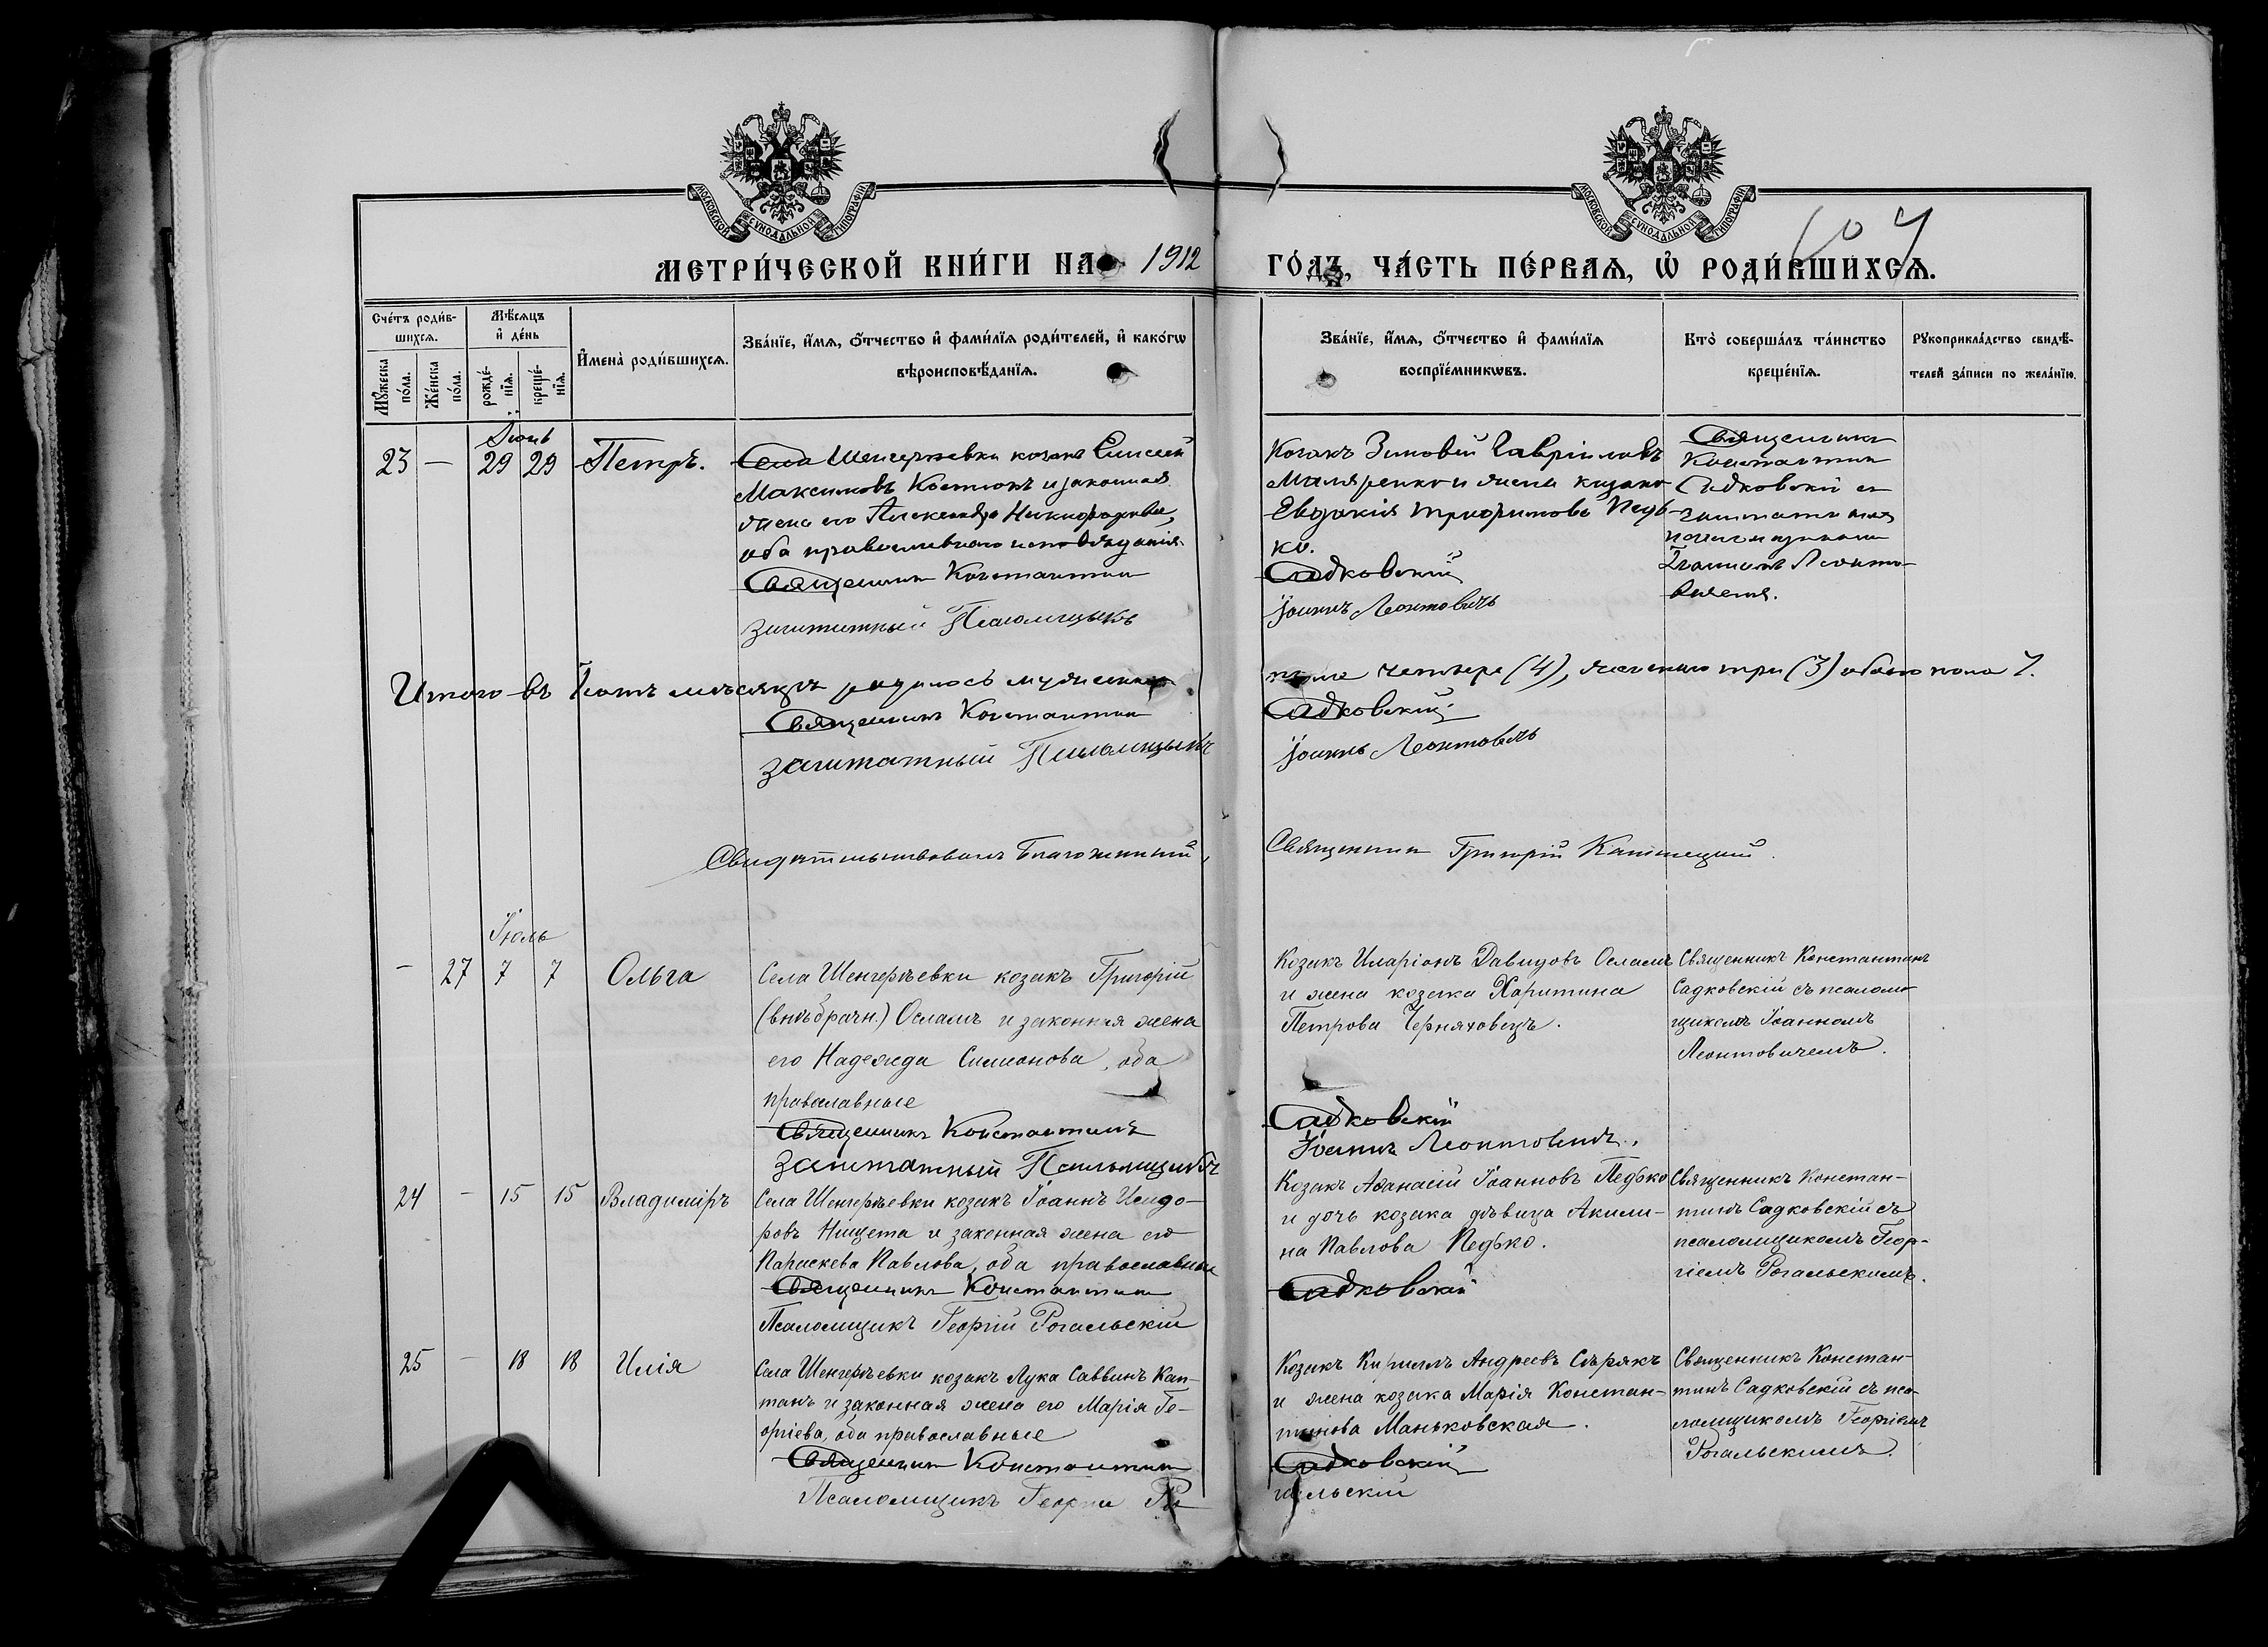 МОСКОВСКОЙ СУНОДАЛЬНОЙ ТИПОГРАФІИ
МОСКОВСКОЙ СУНОДАЛЬНОЙ ТИПОГРАФІИ
104
МЕТРИ́ЧЕСКОЙ КНИ́ГИ НА 1912 ГО́ДЪ, ЧА́СТЬ ПЕ́РВАѦ, Ѡ҆ РОДИ́ВШИХСѦ.
Сче́тъ роди́в-
шихсѧ.
Мꙋ́жеска по́ла.
Же́нска по́ла.
Мѣ́сѧцъ и҆ де́нь
рожде́-нїѧ.
креще́-нїѧ.
И҆мена̀ роди́вшихсѧ.
Зва́нїе, и҆́мѧ, ѻ҆́тчество и҆ фами́лїѧ роди́телей, и҆ како́гѡ
вѣроисповѣ́данїѧ.
Зва́нїе, и҆́мѧ, ѻ҆́тчество и҆ фами́лїѧ
воспрїе́мникѡвъ.
Кто̀ соверша́лъ та́инство
креще́нїѧ.
Рꙋкоприкла́дство свидѣ́-
телей за́писи по жела́нїю.
Іюнь
23 — 29 29 Петръ.
Села Шенгерѣевки козакъ Елисей
Максимовъ Костюкъ и законная
жена его Александра Никифорова,
оба православнаго исповѣданія.
Священникъ Константин
Заштатный Псаломщикъ
Козакъ Зиновій Гавріиловъ
Маляренко и жена козака
Евдокія Трифонова Педь-
ко.
Садковскій
Іоаннъ Леонтовичъ
Священникъ
Константин
Садковскій съ
заштатным
псаломщиком
Іоанномъ Леонто-
вичемъ.
Итого въ Іюнѣ мѣсяцѣ родилось мужеского пола четыре (4), женского три (3) обоего пола 7.
Священникъ Константин Садковскій
Заштатный Псаломщикъ Іоаннъ Леонтовичъ
Свидѣтельствовалъ Благочинный, Священникъ Григорій
Іюль
- 27 7 7 Ольга
Села Шенгерѣевки козакъ Григорій
(внѣбрачн.) Осламъ и законная жена
его Надежда Симеонова, оба
православные
Священникъ Константинъ
Заштатный Псаломщикъ
Козакъ Иларіонъ Давидовъ Осламъ
и жена козака Харитина
Петрова Черняховецъ.
Садковскій
Іоаннъ Леонтовичъ.
Священникъ Константинъ
Садковскій съ псаломо-
щикомъ Іоанномъ
Леонтовичемъ.
24 - 15 15 Владиміръ
Села Шенгерѣевки козакъ Іоаннъ Исидо-
ровъ Нищета и законная жена его
Параскева Павлова, оба православные
Священникъ Константин
Псаломщикъ Георгій Рогальскій
Козакъ Аѳанасій Іоанновъ Педько
и дочь козака дѣвица Акили-
на Павлова Педько.
Садковскій
Священникъ Констан-
тинъ Садковскій съ
псаломщикомъ Геор-
гіемъ Рогальскимъ.
25 - 18 18 Илія
Села Шенгерѣевки козакъ Лука Саввинъ Кап-
танъ и законная жена его Марія Ге-
оргіева, оба православные
Священникъ Константин
Псаломщикъ Георгій Ро-
Козакъ Кириллъ Андреевъ Сѣрякъ
и жена козака Марія Констан-
тинова Маньковская.
Садковскій
гальскій
Священникъ Констан-
тинъ Садковскій съ пса-
ломщикомъ Георгіемъ
Рогальскимъ.